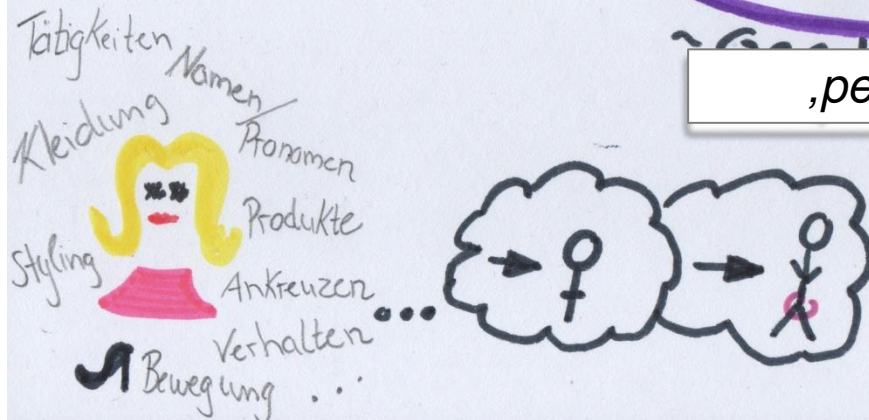 Tätigkeiten
Namen/
Pronomen
Kleidung
Produkte
Styling
Ankreuzen
Verhalten
Bewegung ...
...
‚pe